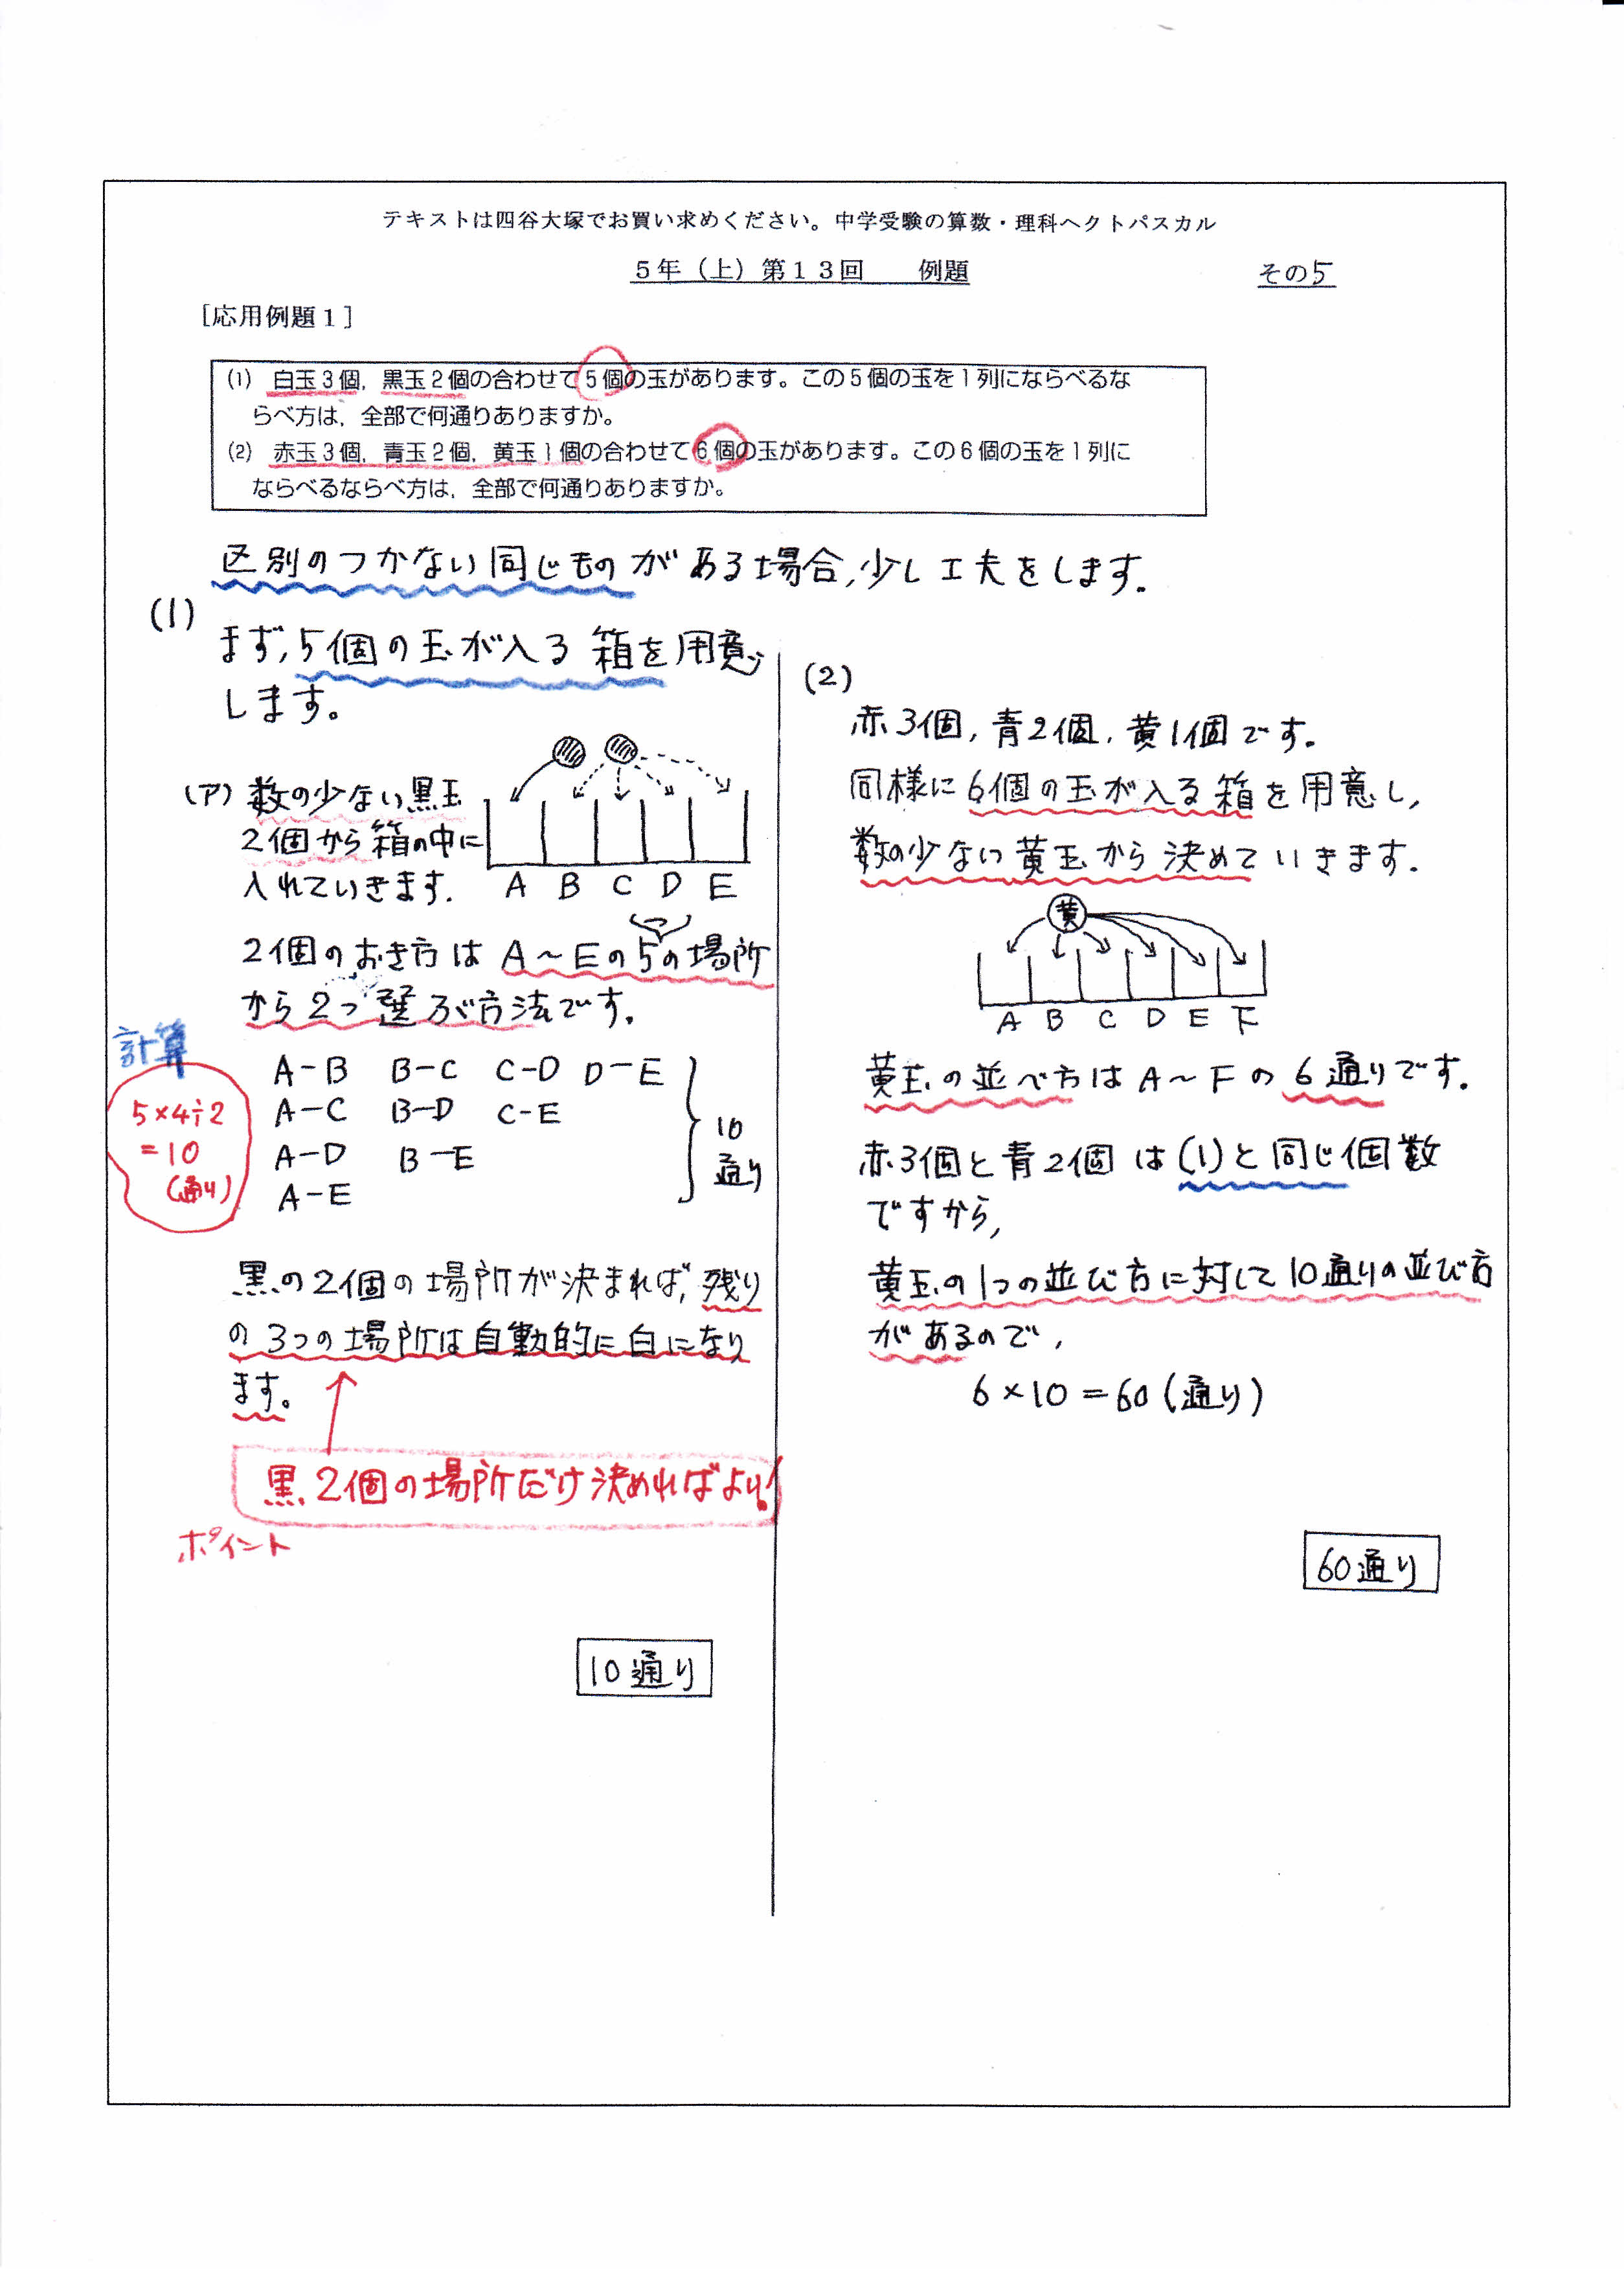 テキストは四谷大塚でお買い求めください。中学受験の算数・理科ヘクトパスカル
5年（上）第13回　例題
その5
［応用例題1］
(1) 白玉3個，黒玉2個の合わせて5個の玉があります。この5個の玉を1列にならべるな
らべ方は，全部で何通りありますか。
(2) 赤玉3個，青玉2個，黄玉1個の合わせて6個の玉があります。この6個の玉を1列に
ならべるならべ方は，全部で何通りありますか。
区別のつかない同じものがある場合,少し工夫をします.
(1)
まず,5個の玉が入る箱を用意
します。
(ア) 数の少ない黒玉
2個から箱の中に
入れていきます.
A B C D E
2個のおき方は A～Eの5の場所
つ
から2つ選ぶ方法です.
計算
5×4÷2
=10
(通り)
A-B B-C C-D D-E
A-C B-D C-E
A-D B-E
A-E
10
通り
黒の2個の場所が決まれば,残り
の3つの場所は自動的に白になり
ます。
黒2個の場所だけ決めればよい!
ポイント
10通り
(2)
赤3個,青2個,黄1個です.
同様に6個の玉が入る箱を用意し,
数の少ない黄玉から決めていきます.
黄
A B C D E F
黄玉の並べ方はA～Fの6通りです.
赤3個と青2個は(1)と同じ個数
ですから,
黄玉の1つの並び方に対して10通りの並び方
があるので,
6×10=60(通り)
60通り